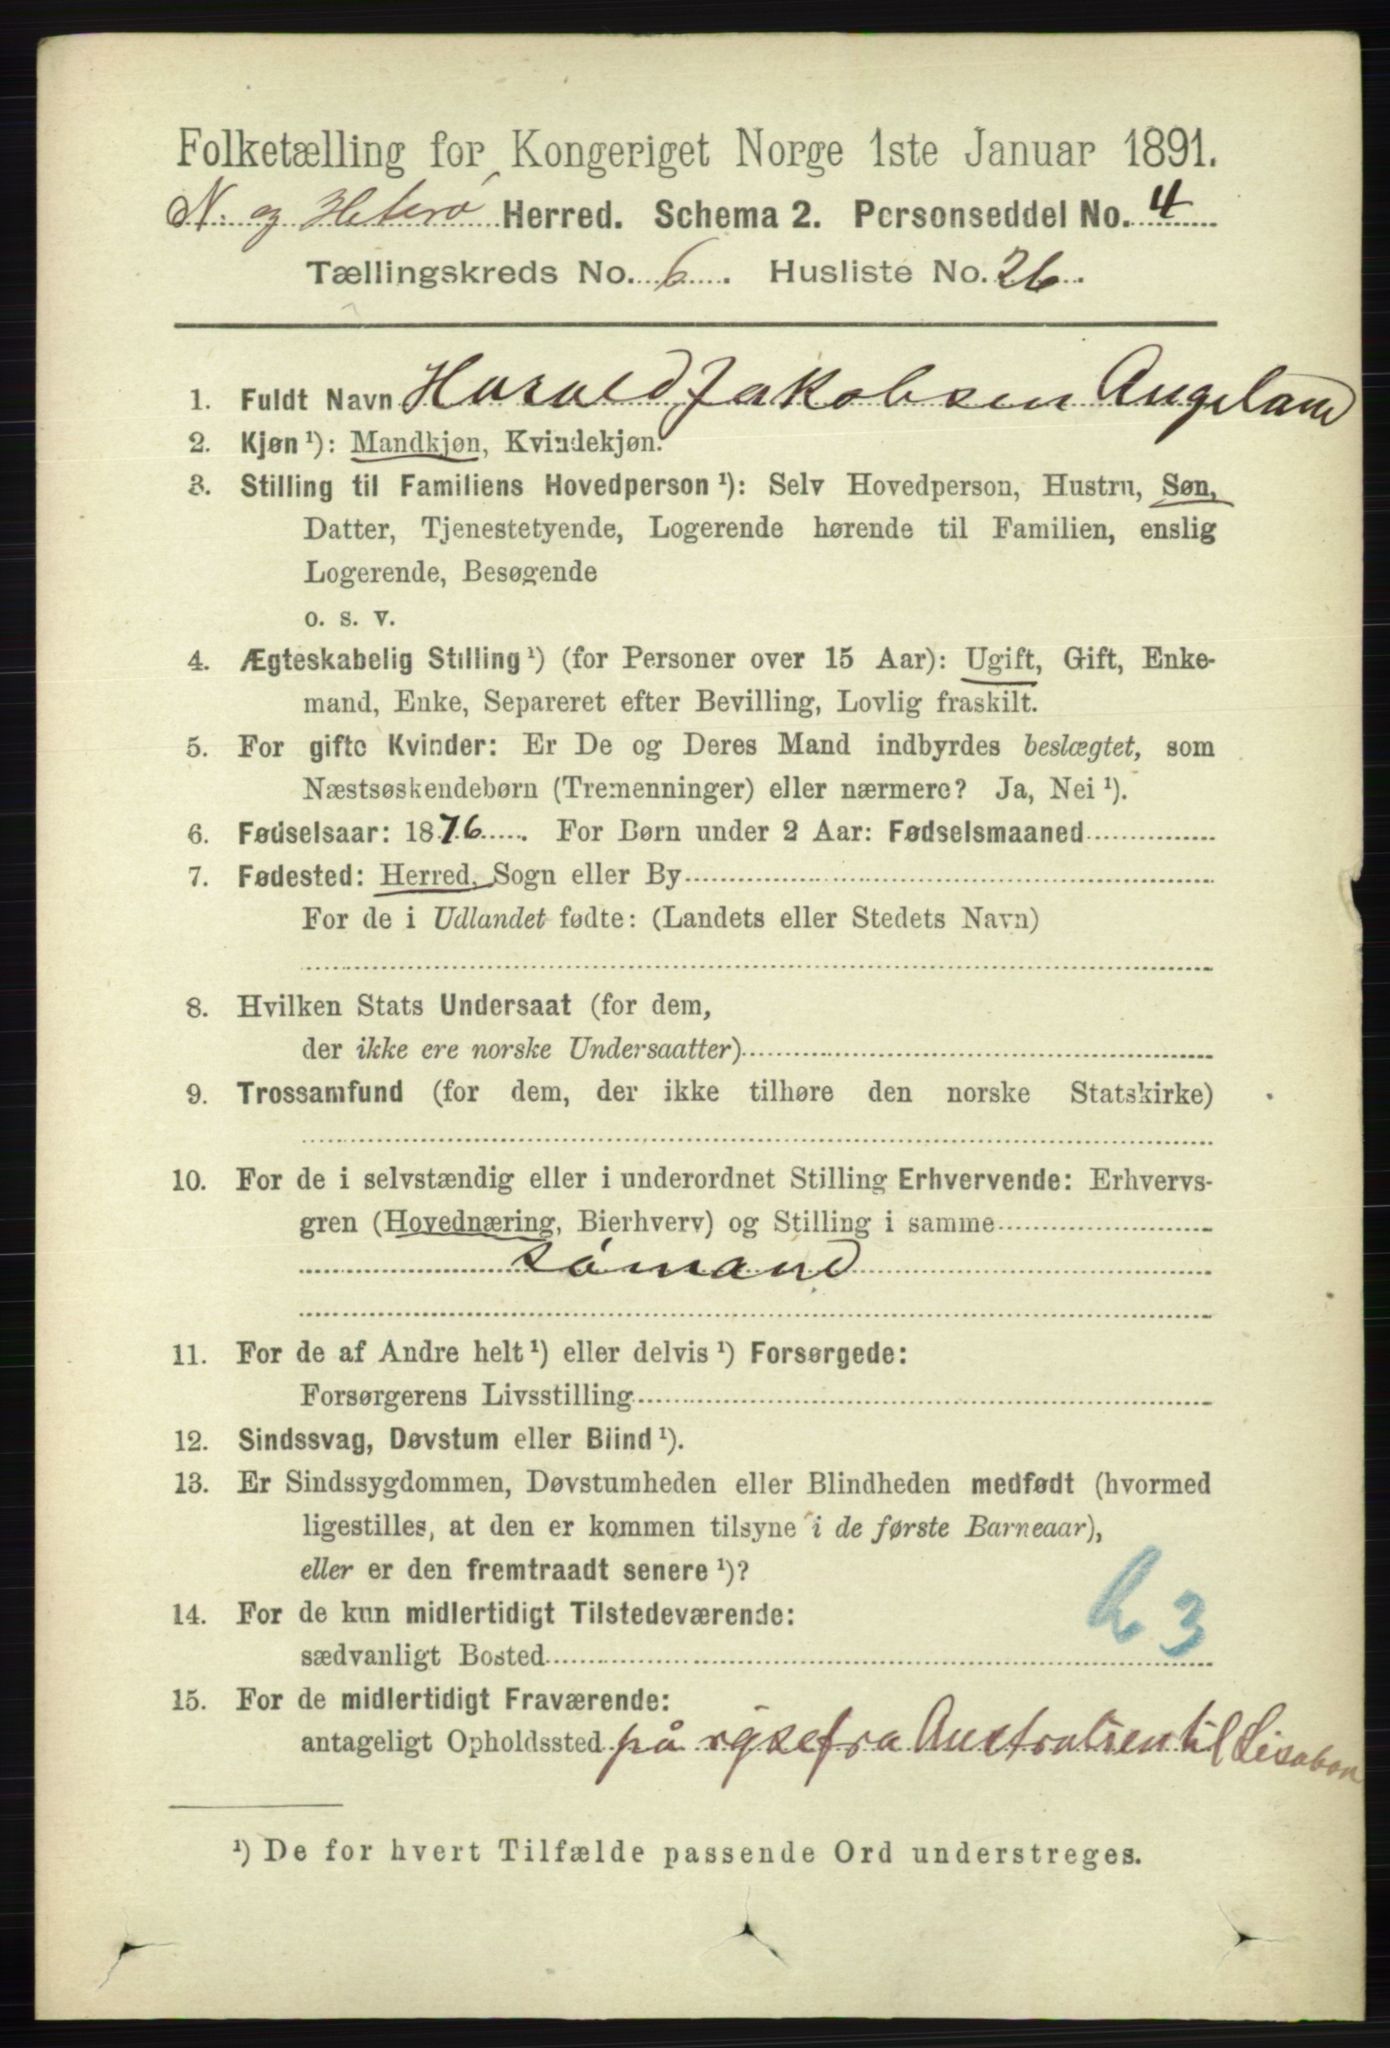 Folketælling for Kongeriget Norge 1ste Januar 1891.
N. og Heterø Herred. Schema 2. Personseddel No. 4
Tællingskreds No. 6. Husliste No. 26.
1. Fuldt Navn Harald Jakobsen Angeland
2. Kjøn¹): Mandkjøn, Kvindekjøn.
3. Stilling til Familiens Hovedperson¹): Selv Hovedperson, Hustru, Søn,
Datter, Tjenestetyende, Logerende hørende til Familien, enslig
Logerende, Besøgende
o. s. v.
4. Ægteskabelig Stilling¹) (for Personer over 15 Aar): Ugift, Gift, Enke-
mand, Enke, Separeret efter Bevilling, Lovlig fraskilt.
5. For gifte Kvinder: Er De og Deres Mand indbyrdes beslægtet, som
Næstsøskendebørn (Tremenninger) eller nærmere? Ja, Nei¹).
6. Fødselsaar: 1876. For Børn under 2 Aar: Fødselsmaaned
7. Fødested: Herred, Sogn eller By
For de i Udlandet fødte: (Landets eller Stedets Navn)
8. Hvilken Stats Undersaat (for dem,
der ikke ere norske Undersaatter)
9. Trossamfund (for dem, der ikke tilhøre den norske Statskirke)
10. For de i selvstændig eller i underordnet Stilling Erhvervende: Erhvervs-
gren (Hovednæring, Bierhverv) og Stilling i samme
sømand
11. For de af Andre helt¹) eller delvis¹) Forsørgede:
Forsørgerens Livsstilling
12. Sindssvag, Døvstum eller Blind¹).
13. Er Sindssygdommen, Døvstumheden eller Blindheden medfødt (hvormed
ligestilles, at den er kommen tilsyne i de første Barneaar),
eller er den fremtraadt senere¹)?
14. For de kun midlertidigt Tilstedeværende:
sædvanligt Bosted
h 3
15. For de midlertidigt Fraværende:
antageligt Opholdssted på rejse fra Australien til Lisabon
¹) De for hvert Tilfælde passende Ord understreges.